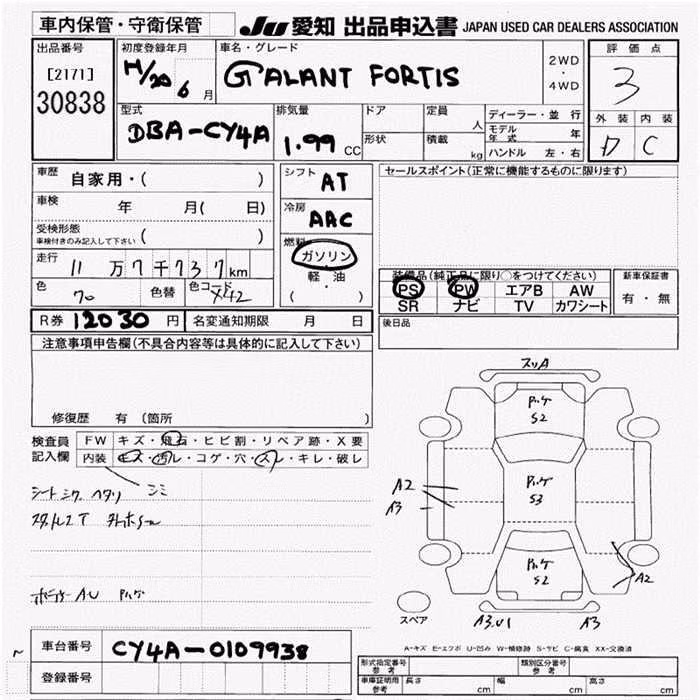 車内保管・守衛保管 JU 愛知 出品申込書 JAPAN USED CAR DEALERS ASSOCIATION
出品番号 初度登録年月 車名・グレード 評価点
[2171] H/20 6 月 GALANT FORTIS 2WD・4WD 3
30838
型式 排気量 ドア 定員 人 ディーラー・並行 外装 内装
DBA-CY4A 1.99 CC 形状 積載 kg モデル年式 年 D C
ハンドル 左・右
車歴 自家用・( ) シフト AT セールスポイント(正常に機能するものに限ります)
車検 年 月( 日) 冷房 AAC
受検形態 ( )
車検付きのみ記入して下さい
燃料 ガソリン
軽・油
( )
走行 11万7千737km
色 70 色替 色コード X42
装備品(純正品に限り○をつけてください) 新車保証書
PS PW エアB AW 有・無
SR ナビ TV カワシート
R券 12030 円 名変通知期限 月 日 後日品
注意事項申告欄(不具合内容等は具体的に記入して下さい)
修復歴 有 (箇所 )
検査員記入欄 FW キズ・飛石・ヒビ割・リペア跡・X要
内装 キズ・汚レ・コゲ・穴・スレ・キレ・破レ
シミ
AU
スリA
S2
A2
A3
S3
S2
A2
スペア A3.U1 A3
A-キズ E-エクボ U-凹み W-補修跡 S-サビ C-腐食 XX-交換済
車台番号 CY4A-0109938
登録番号
形式指定番号 参考 類別区分番号 参考
車庫証明用 参考 長さ cm 幅 cm 高さ cm